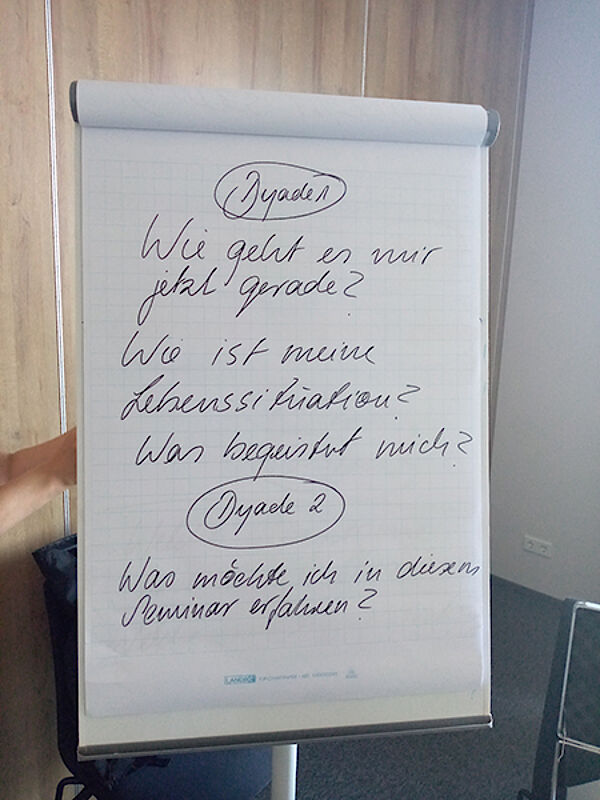 Dyade 1
Wie geht es mir
jetzt gerade?
Wie ist meine
Lebenssituation?
Was begeistert mich?
Dyade 2
Was möchte ich in diesem
Seminar erfahren?